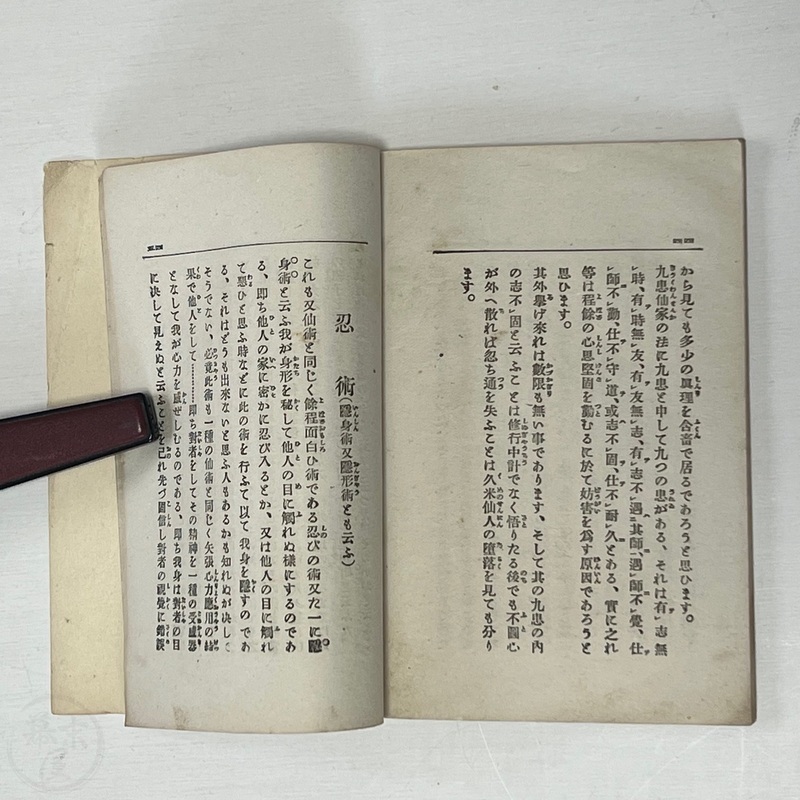 から見ても多少の眞理を含畜で居るであろうと思ひます。
九患仙家の法に九患と申して九つの患がある、それは有志無
時、有時無友、有友無志、有志不遇其師、遇師不覺、仕
師不勤、仕不守道、或志不固、仕不耐久とある、實に之れ
等は程餘の心思堅固を勸むるに於て妨害を爲す原因であろうと
思ひます。
其外擧げ來れは數限も無い事であります、そして其の九患の內
の志不固と云ふことは修行中計でなく悟りたる後でも不圖心
が外へ散れば忽ち通を失ふことは久米仙人の墮落を見ても分り
ます。
忍術(隱身術又隱形術とも云ふ)
これも又仙術と同じく餘程面白ひ術である忍びの術又た一に隱
身術と云ふ我が身形を秘して他人の目に觸れぬ樣にするのであ
る、即ち他人の家に密かに忍び入るとか、又は他人の目に觸れ
て惡ひと思ふ時などに此の術を行ふて以て我身を隱すのであ
る、それはどうも出來ないと思ふ人もあるかも知れぬが決して
そうでない、必竟此術も一種の仙術と同じく矢張心力應用の結
果で他人をして…………即ち對者をしてその精神を一種の受感器
となして我が心力を感ぜしむるのである、即ち我身は對者の目
に決して見えぬと云ふことを己れ先づ固信し對者の視覺に錯誤